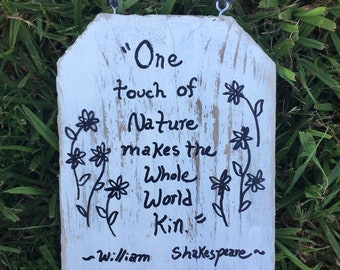 "One
touch of
Nature
makes the
Whole
World
Kin."
~William Shakespeare~